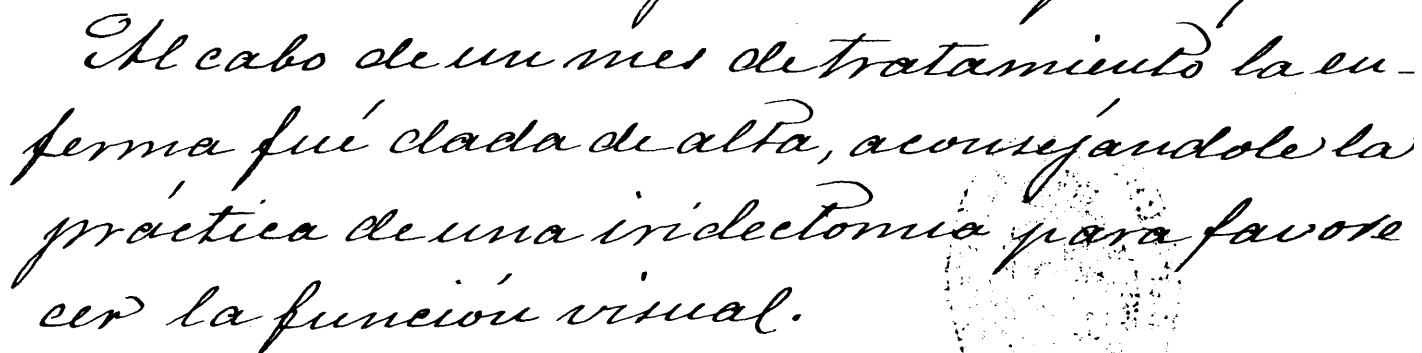 Al cabo de un mes de tratamiento la en-
ferma fué dada de alta, aconsejándole la
práctica de una iridectomia para favore
cer la función visual.